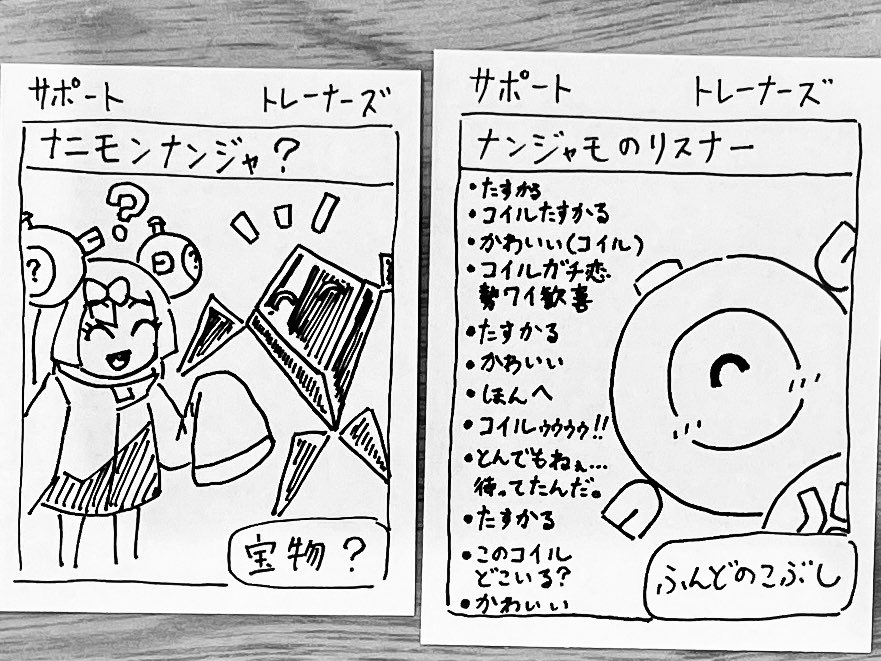 サポート トレーナーズ
ナニモンナンジャ？
?
?
?
宝物？
サポート トレーナーズ
ナンジャモのリスナー
・たすかる
・コイルたすかる
・かわいい(コイル)
・コイルガチ恋
勢ワイ歓喜
・たすかる
・かわいい
・ほんへ
・コイルゥゥゥゥ!!
・とんでもねぇ…
待ってたんだ。
・たすかる
・このコイル
どこいる?
・かわいい
ふんどのこぶし